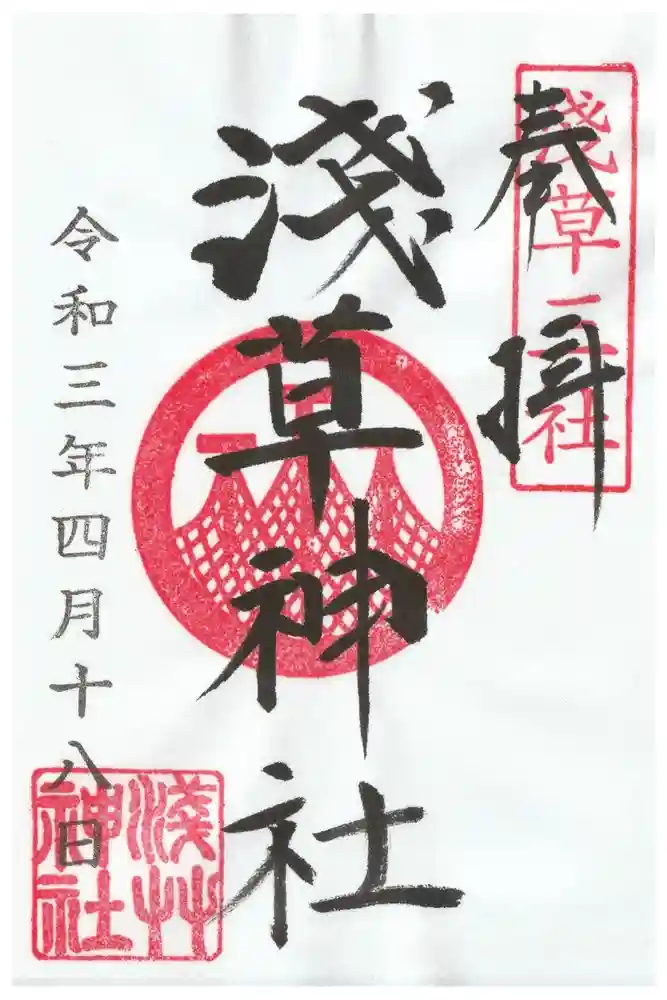 奉拝
淺草三社
淺草神社
令和三年四月十八日
淺艸
神社